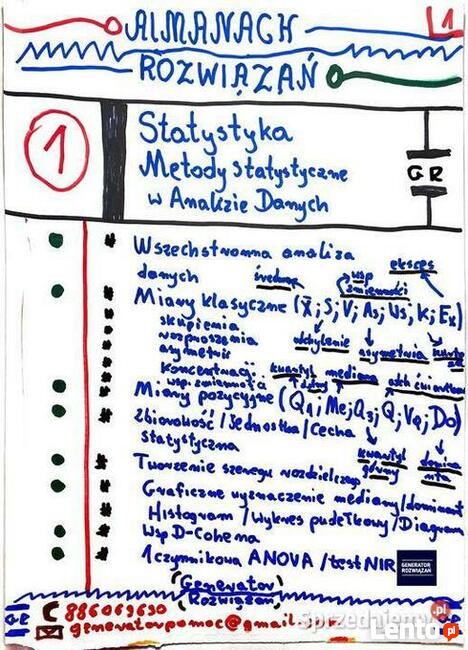 ALMANACH
1
ROZWIĄZAŃ
1
Statystyka
Metody statystyczne
w Analizie Danych
GR
Wszechstronna analiza
danych
średnia
wsp
zmienności
eksces
Miary klasyczne (x̄; S; V; As; Us; K; Ex)
skupienia
rozproszenia
asymetrii
koncentracji
wsp. zmienności
odchylenie
asymetria
kwartyl
dolny
mediana
odch ćwiartkowe
Miary pozycyjne (Q1; Me; Q3; Q; VQ; Do)
Zbiorowość / Jednostka / Cecha
statystyczna
kwartyl
górny
domina
nta
Tworzenie szeregu rozdzielczego
Graficzne wyznaczenie mediany / dominant
Histogram / Wykres pudełkowy / Diagram
Wsp D-Cohena
1 czynnikowa ANOVA / test NIR
GENERATOR
ROZWIĄZAŃ
Generator
Rozwiązań
GR
886069630
generatorpomoc@gmail.
Sprzedajemy.pl
Lento.pl